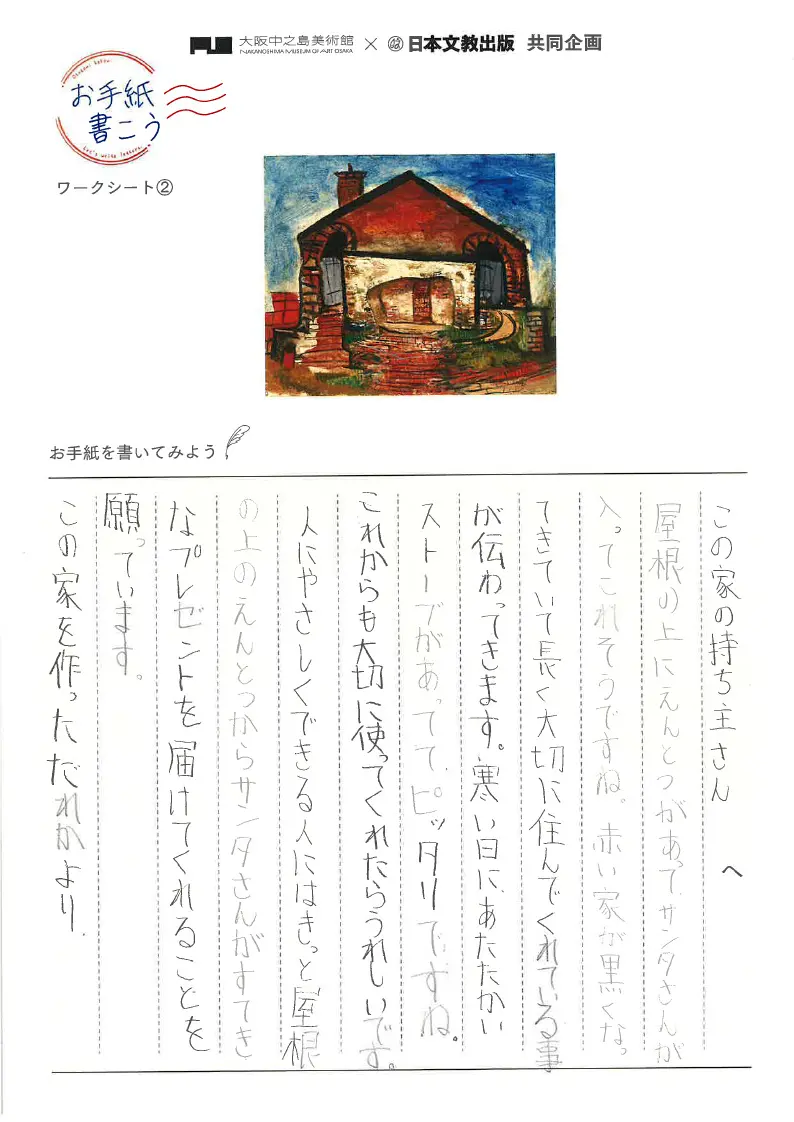 大阪中之島美術館
NAKANOSHIMA MUSEUM OF ART OSAKA
×
日本文教出版 共同企画
お手紙
書こう
Let's write letters!
ワークシート②
お手紙を書いてみよう
この家の持ち主さん へ
屋根の上にえんとつがあって、サンタさんが
入ってこれそうですね。赤い家が黒くなっ
てきていて長く大切に住んでくれている事
が伝わってきます。寒い日に、あたたかい
ストーブがあってて、ピッタリですね。
これからも大切に使ってくれたらうれしいです。
人にやさしくできる人にはきっと屋根
の上のえんとつからサンタさんがすてき
なプレゼントを届けてくれることを
願っています。
この家を作っただれかより.